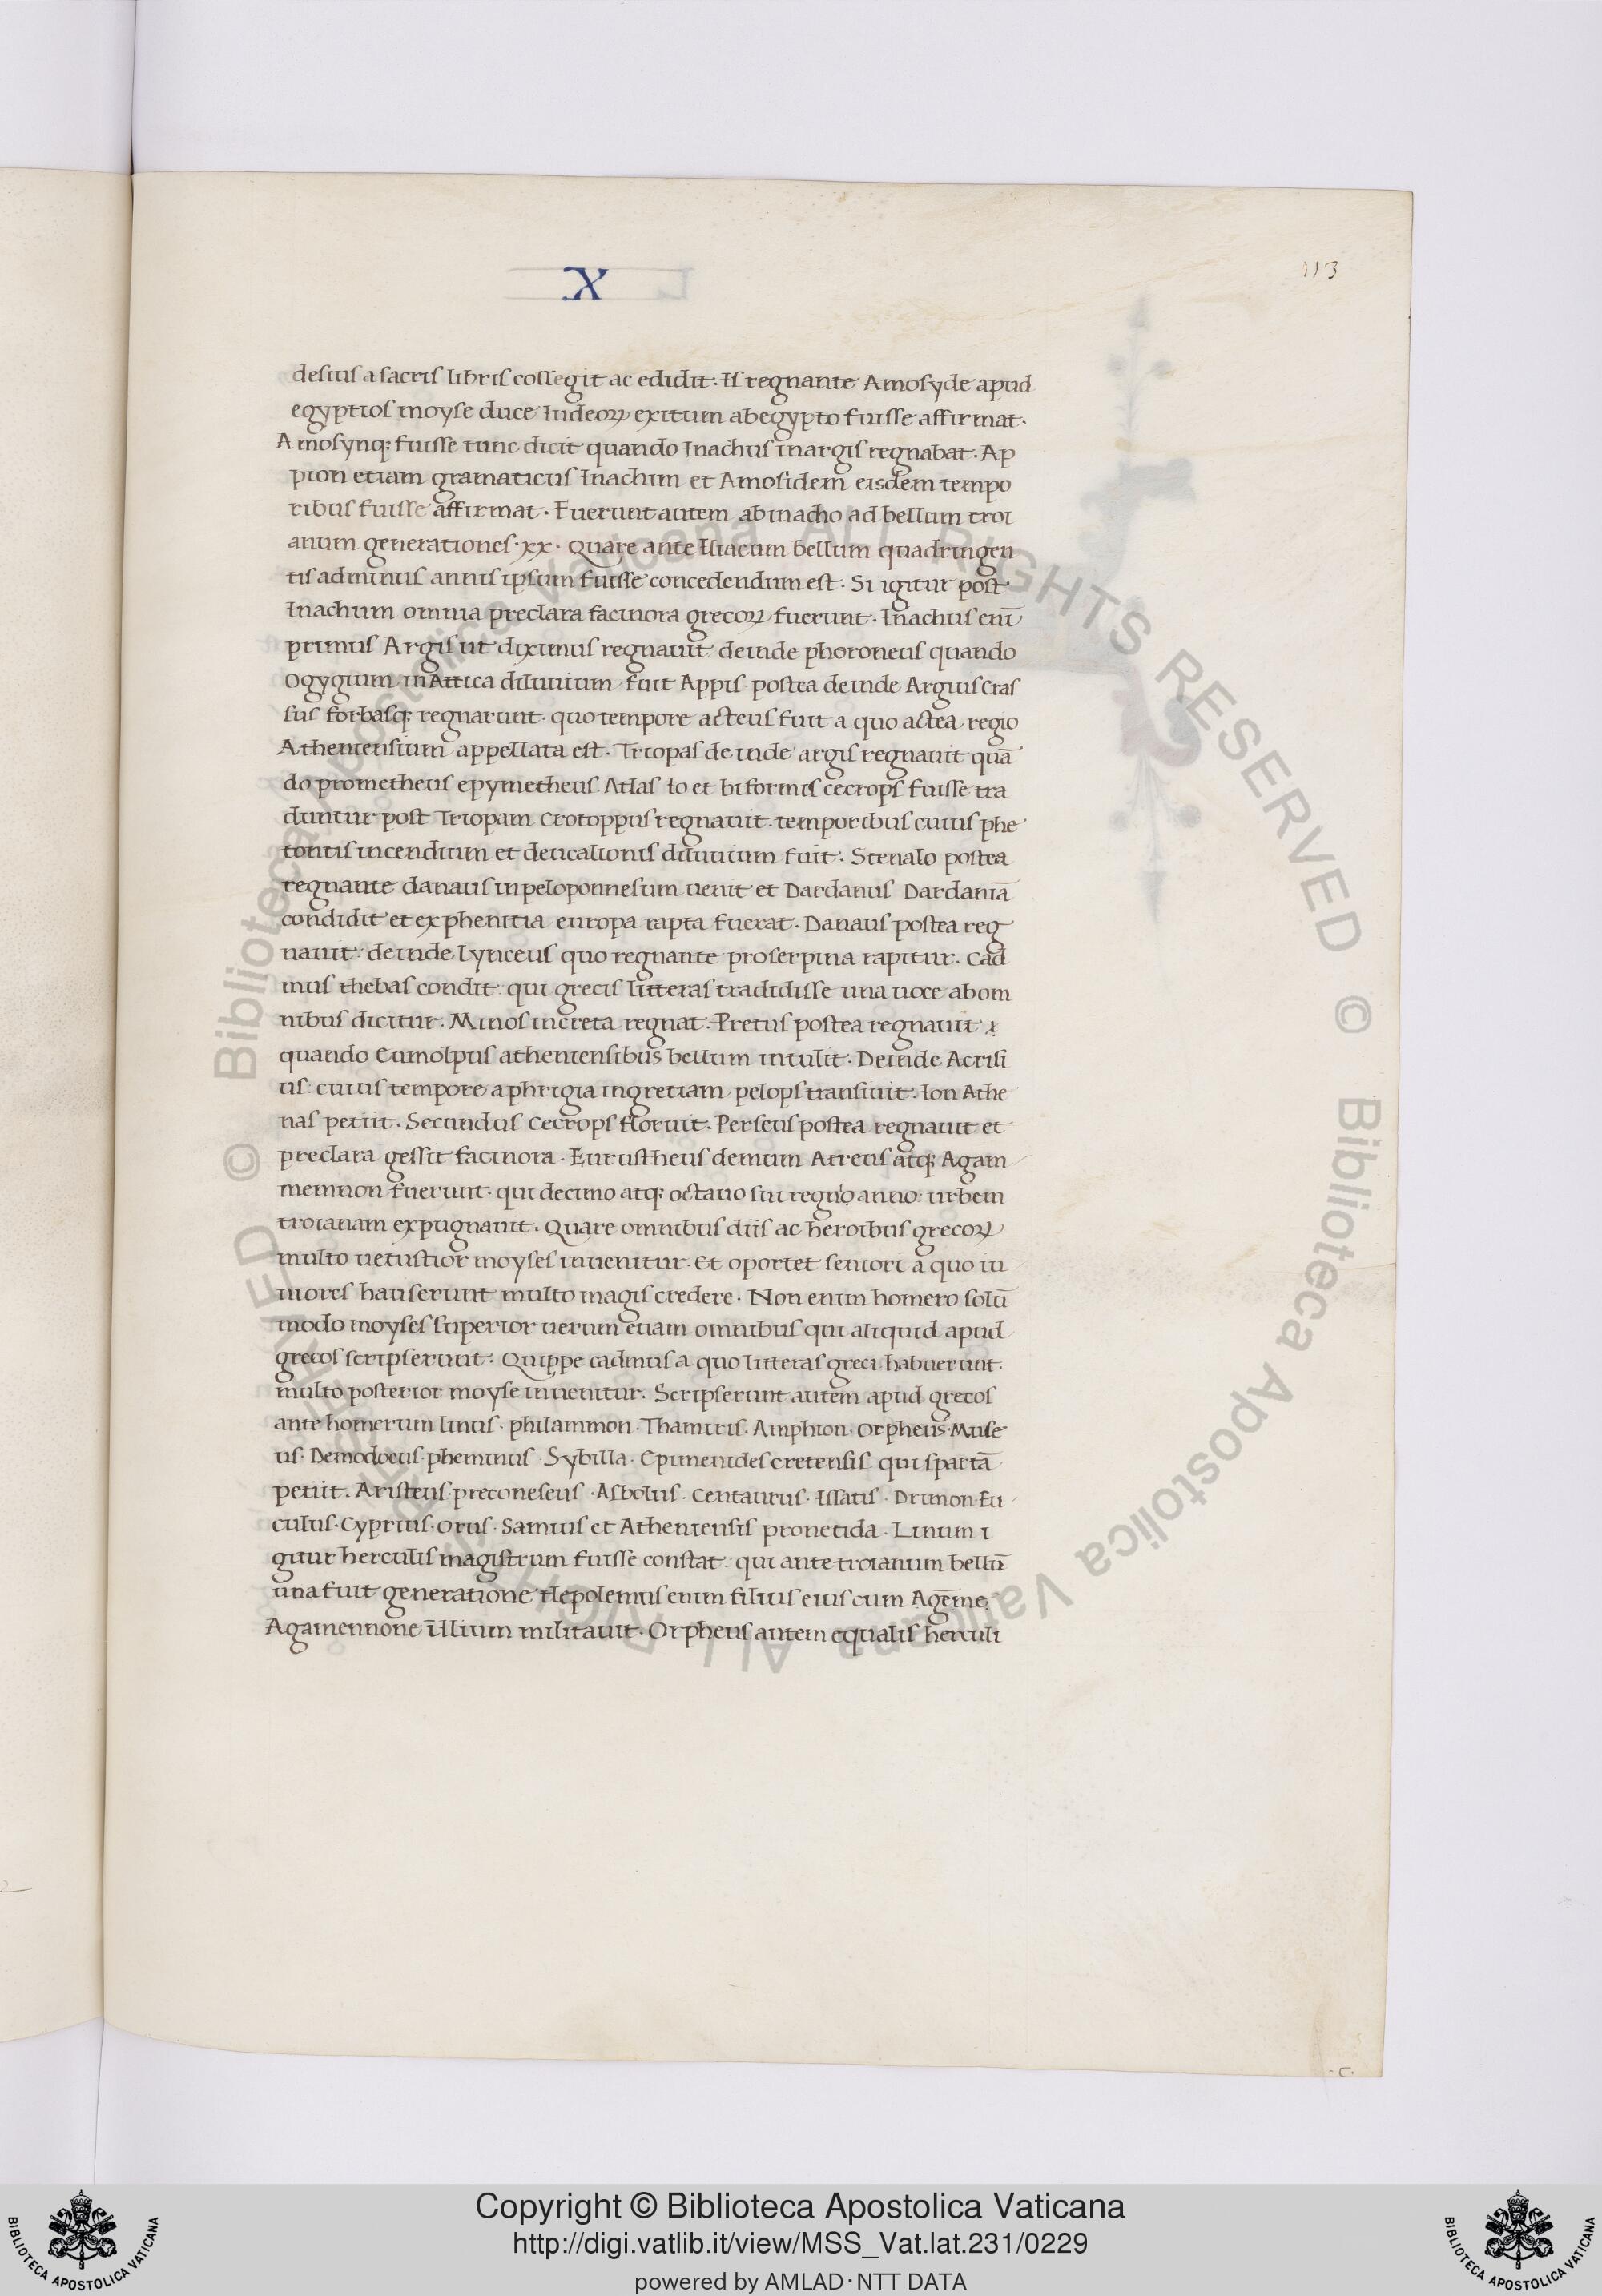 X
113
desius a sacris libris collegit ac edidit. Is regnante Amosyde apud
egyptios moyse duce Iudeoꝝ exitum ab egypto fuisse affirmat.
Amosynq; fuisse tunc dicit quando Inachus in argis regnabat. Ap
pion etiam gramaticus Inachum et Amosidem eisdem tempo
ribus fuisse affirmat. Fuerunt autem ab inacho ad bellum troi
anum generationes .xx. Quare ante Iliacum bellum quadringen
tis ad minus annis ipsum fuisse concedendum est. Si igitur post
Inachum omnia preclara facinora grecoꝝ fuerunt. Inachus eni̅
primus Argis ut diximus regnauit deinde phoroneus quando
Ogygium in Attica diluuium fuit Appis postea deinde Argus Cras
sus forbasq; regnarunt. quo tempore acteus fuit a quo actea regio
Atheniensium appellata est. Triopas deinde argis regnauit qua̅
do prometheus epymetheus Atlas Io et biformis cecrops fuisse tra
duntur post Triopam Crotoppus regnauit. temporibus cuius phe
tontis incendium et deucalionis diluuium fuit: Stenalo postea
regnante danaus in peloponnesum uenit et Dardanus Dardania̅
condidit et ex phenitia europa rapta fuerat. Danaus postea reg
nauit: deinde Lynceus quo regnante proserpina rapitur. Cad
mus thebas condit qui grecis litteras tradidisse una uoce ab om
nibus dicitur. Minos in creta regnat. Pretus postea regnauit
quando Eumolpus atheniensibus bellum intulit. Deinde Acrisi
us: cuius tempore a phrigia in gretiam pelops transiuit. Ion Athe
nas petiit. Secundus Cecrops floruit. Perseus postea regnauit et
preclara gessit facinora. Eurustheus demum Atreus atq; Agam
memnon fuerunt. qui decimo atq; octauo sui regno anno: urbem
troianam expugnauit. Quare omnibus diis ac heroibus grecoꝝ
multo uetustior moyses inuenitur. Et oportet seniori a quo iu
niores hauserunt multo magis credere. Non enim homero solu̅
modo moyses superior uerum etiam omnibus qui aliquid apud
grecos scripserunt: Quippe cadmus a quo litteras greci habuerunt.
multo posterior moyse inuenitur. Scripserunt autem apud grecos
ante homerum linus. philammon. Thamiris. Amphion. Orpheus. Muse
us. Demodocus. pheminus. Sybilla. Epimenides cretensis qui sparta̅
petiit. Aristeus. preconeseus. Asbolus. Centaurus. Issatis. Drimon. Eu
culus. Cyprius. Orus. Samius et Atheniensis pronetida. Linum i
gitur herculis magistrum fuisse constat: qui ante troianum bellu̅
una fuit generatione tlepolemus enim filius eius cum Age̅me.
Agamennone Ilium militauit. Orpheus autem equalis herculi
-c.
Copyright © Biblioteca Apostolica Vaticana
http://digi.vatlib.it/view/MSS_Vat.lat.231/0229
powered by AMLAD·NTT DATA
BIBLIOTECA APOSTOLICA VATICANA
BIBLIOTECA APOSTOLICA VATICANA
© Biblioteca Apostolica Vaticana ALL RIGHTS RESERVED © Biblioteca Apostolica Vaticana ALL RIGHTS RESERVED